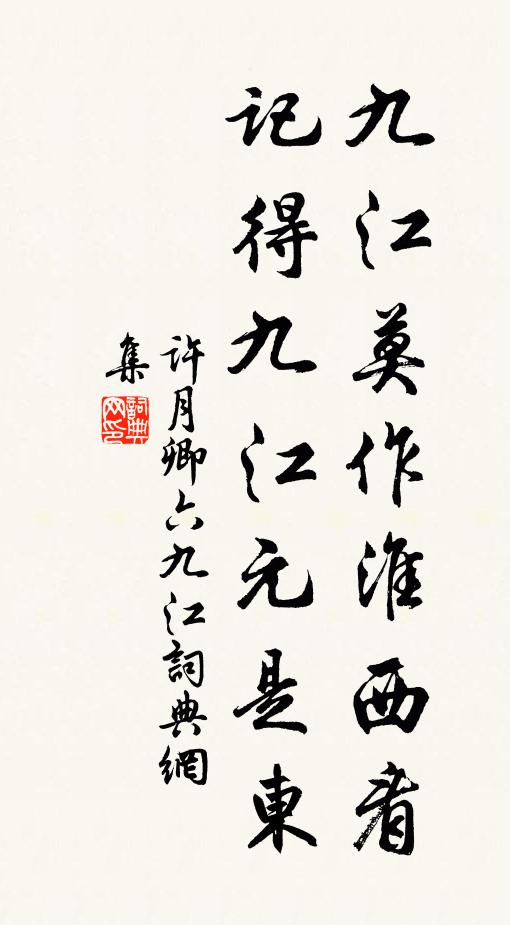 九江莫作淮西看
記得九江元是東
許月卿六九江詞典網
集
詞典网印